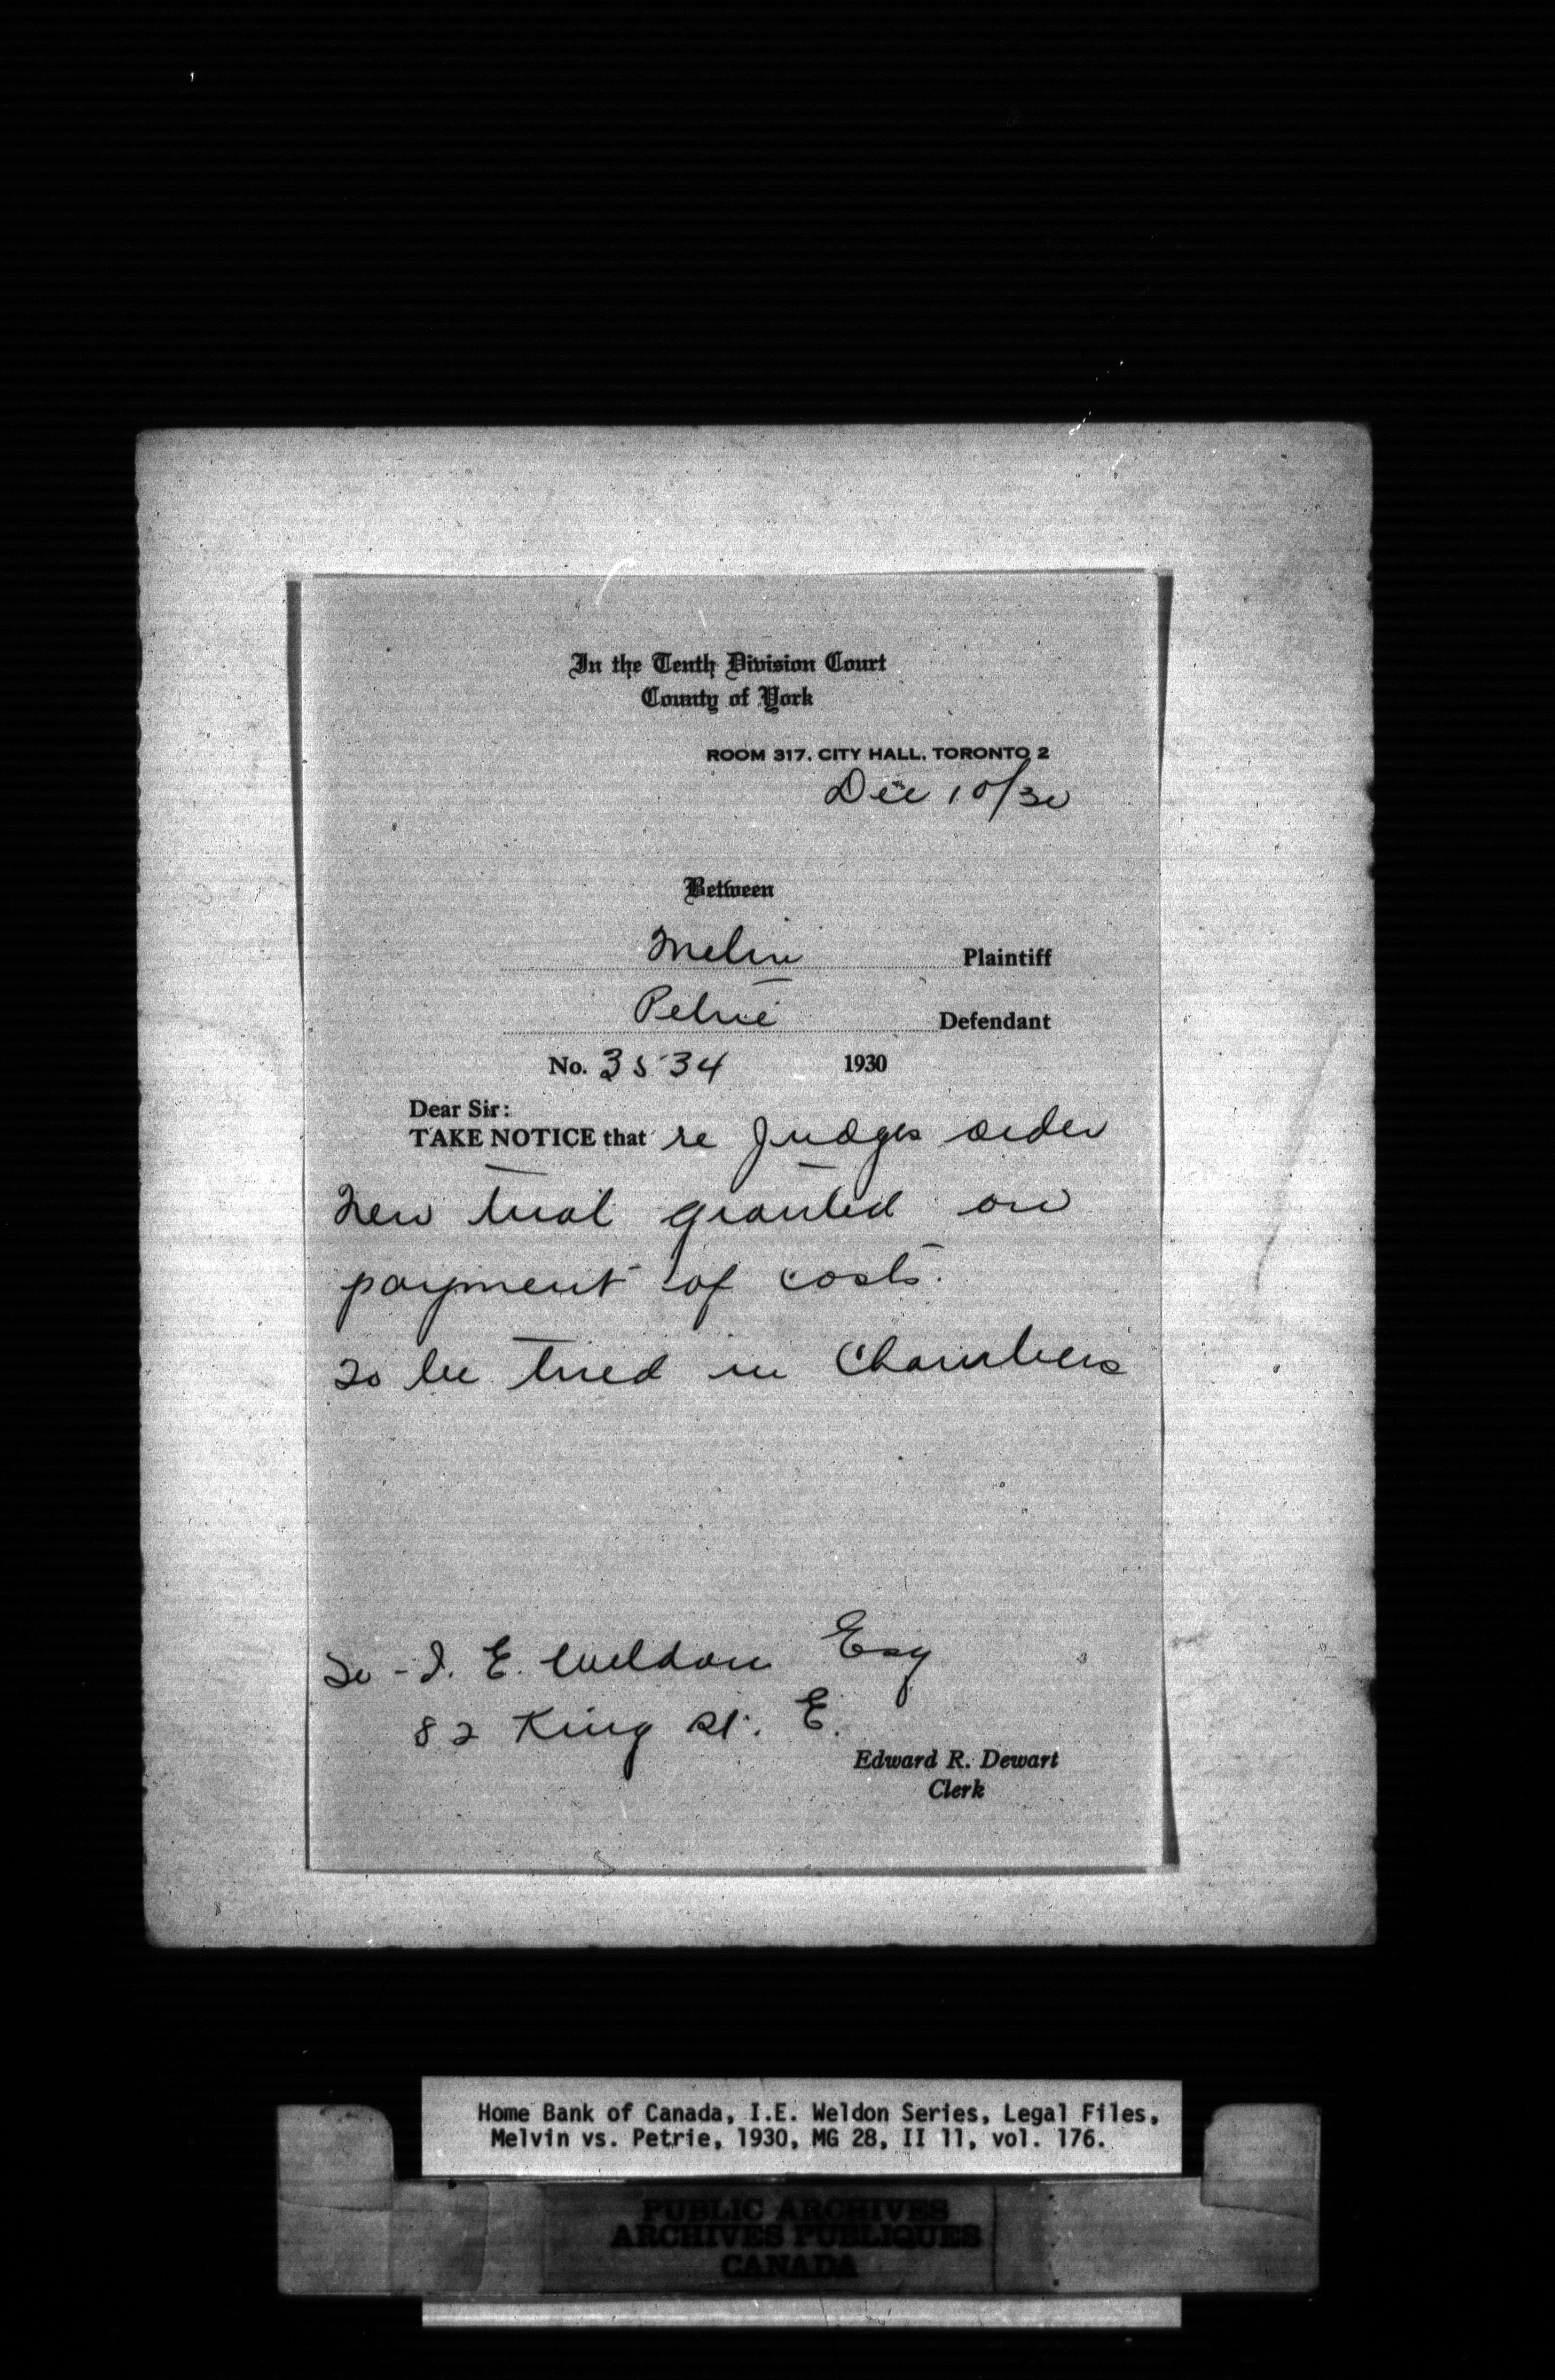 In the Tenth Division Court
County of York
ROOM 317, CITY HALL, TORONTO 2
Dec 10/30
Between
Melvin Plaintiff
Petrie Defendant
No. 3534 1930
Dear Sir:
TAKE NOTICE that re Judges order
New trial granted on
payment of costs.
To be tried in Chambers
To - I. E. Weldon Esq
82 King St. E.
Edward R. Dewart
Clerk
Home Bank of Canada, I.E. Weldon Series, Legal Files,
Melvin vs. Petrie, 1930, MG 28, II 11, vol. 176.
PUBLIC ARCHIVES
ARCHIVES PUBLIQUES
CANADA